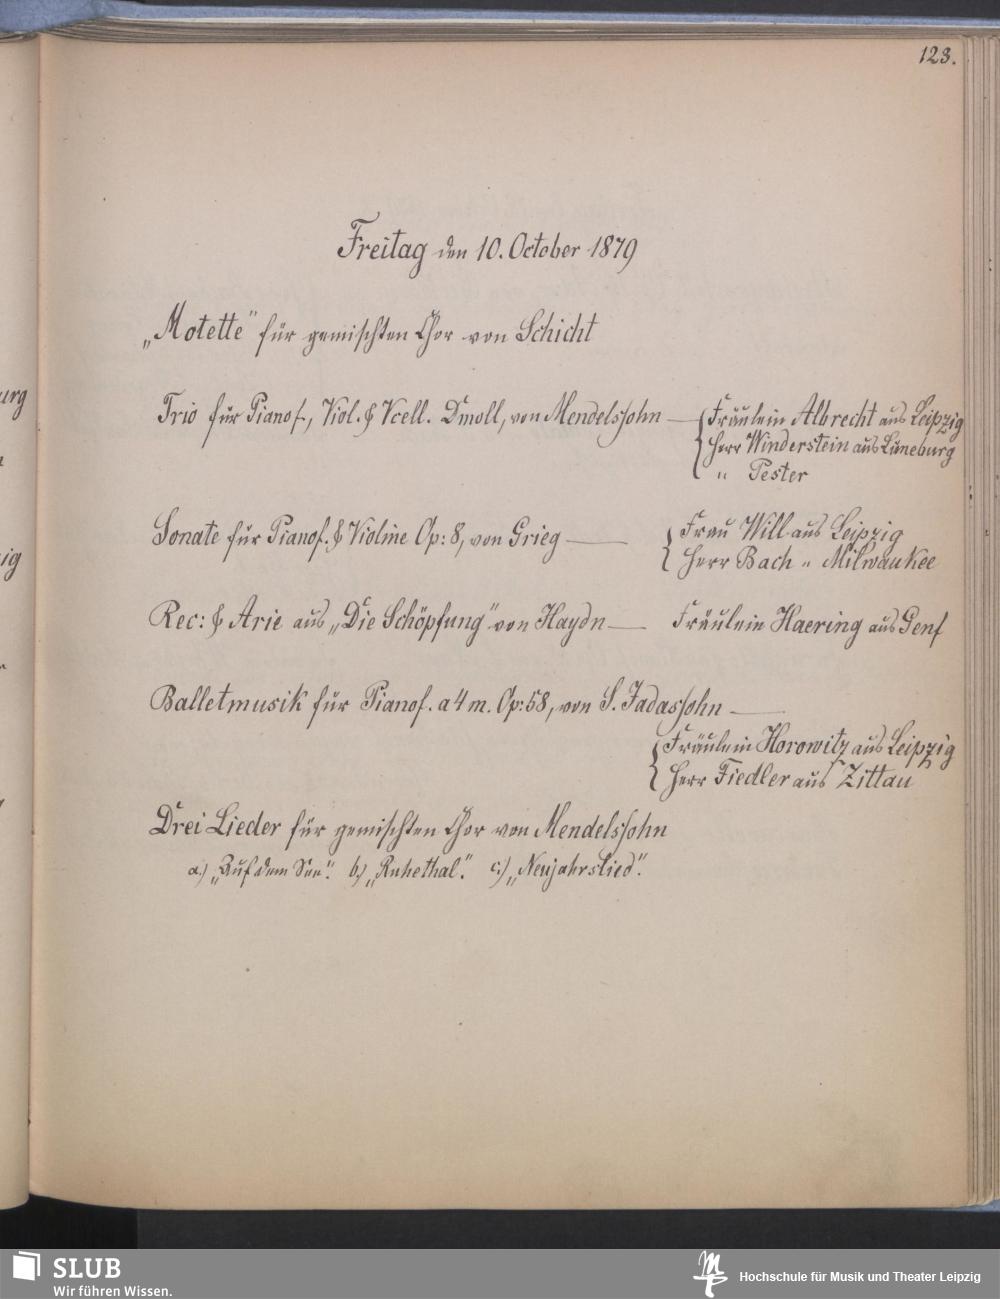 123.
Freitag den 10. October 1879
„Motette" für gemischten Chor von Schicht
Trio für Pianof., Viol. & Vcell. Dmoll, von Mendelssohn — Fräulein Albrecht aus Leipzig
Herr Winderstein aus Lüneburg
" Pester
Sonate für Pianof. & Violine Op: 8, von Grieg — Frau Will aus Leipzig
Herr Bach " Milwaukee
Rec: & Arie aus „Die Schöpfung" von Haydn — Fräulein Haering aus Genf
Balletmusik für Pianof. a 4 m. Op: 58, von S. Jadassohn —
Fräulein Horowitz aus Leipzig
Herr Fiedler aus Zittau
Drei Lieder für gemischten Chor von Mendelssohn
a.) „Auf dem See". b.) „Ruhethal". c.) „Neujahrslied".
urg
ig
SLUB
Wir führen Wissen.
Hochschule für Musik und Theater Leipzig